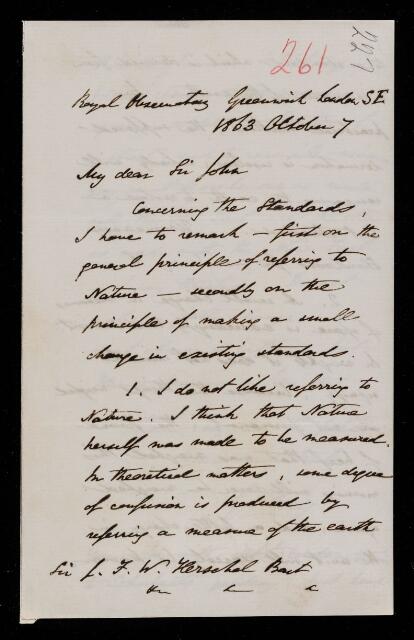 261
227
Royal Observatory Greenwich London, S.E.
1863 October 7
My dear Sir John
Concerning the Standards,
I have to remark — first on the
general principle of referring to
Nature — secondly on the
principle of making a small
change in existing standards.
1. I do not like referring to
Nature. I think that Nature
herself was made to be measured.
In theoretical matters, some degree
of confusion is produced by
referring a measure of the earth
Sir J. F. W. Herschel Bart